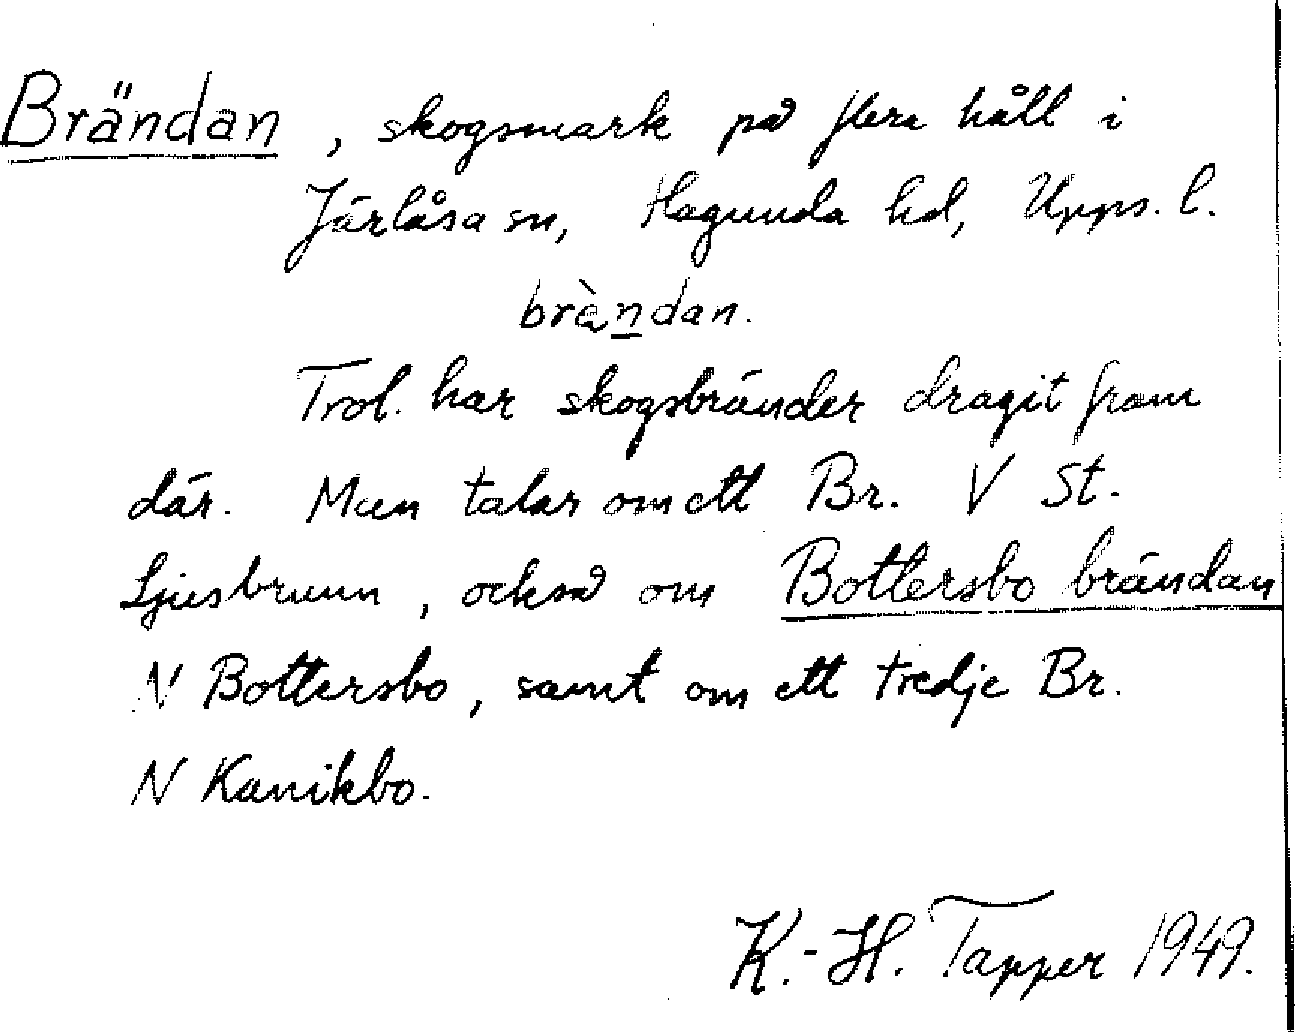 Brändan, skogsmark på flera håll i
Järlåsa sn, Hagunda hd, Upps. l.
bràndan.
Trol. har skogsbränder dragit fram
där. Man talar om ett Br. V St.
Ljusbrunn, också om Bottersbo brändan
N Bottersbo, samt om ett tredje Br.
N Kanikbo.
K.-H. Tapper 1949.